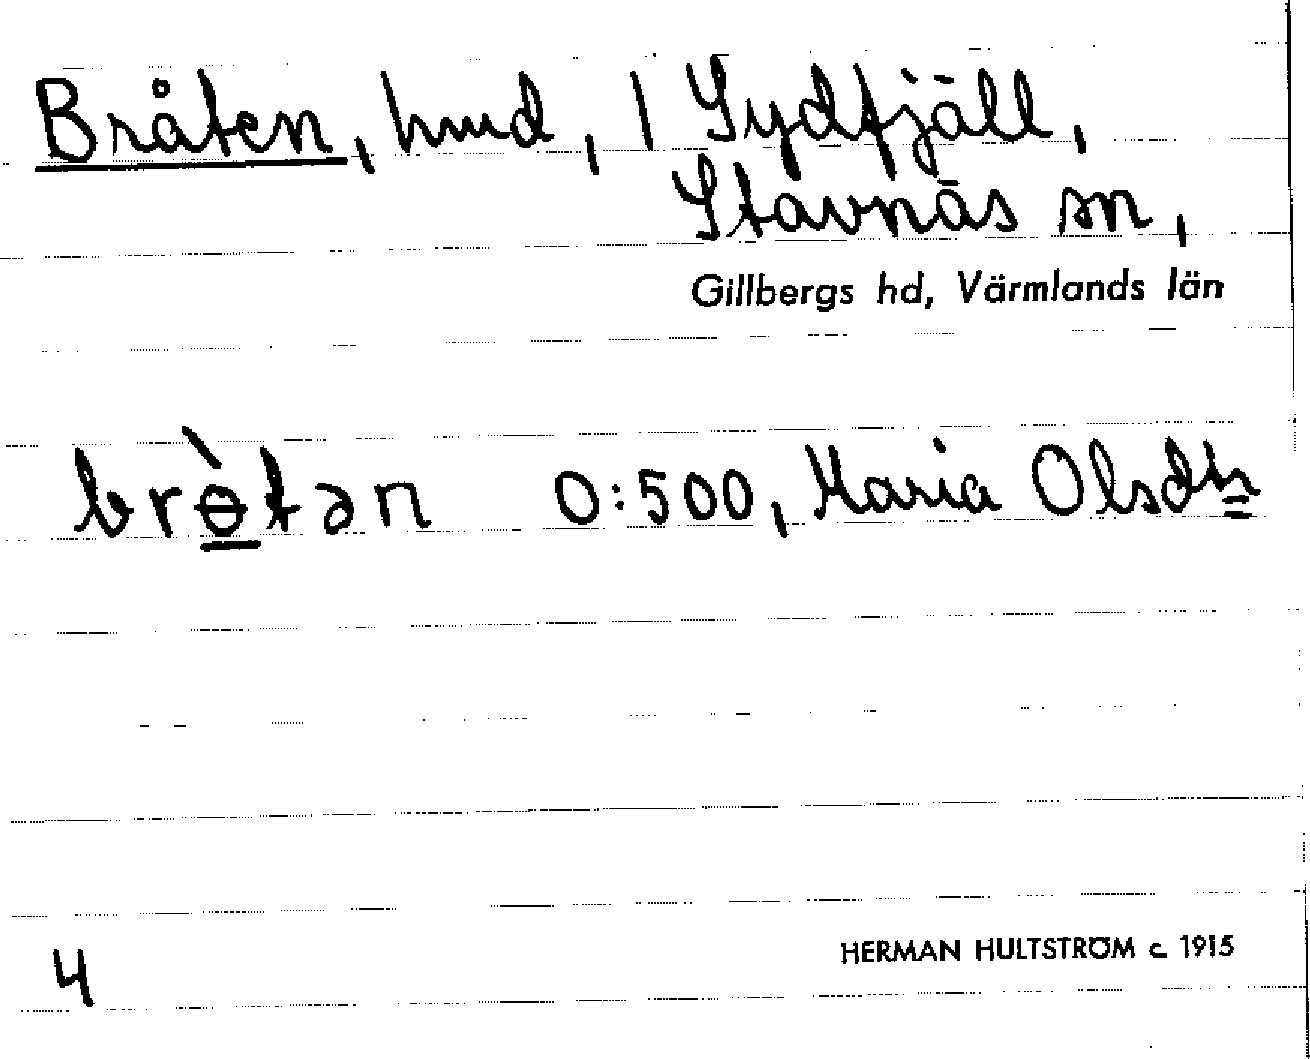 Bråten, hmd, / Sydfjäll,
Stavnäs sn,
Gillbergs hd, Värmlands län
brɵ̀tən 0:500, Maria Olsdtr
4
HERMAN HULTSTRÖM c. 1915